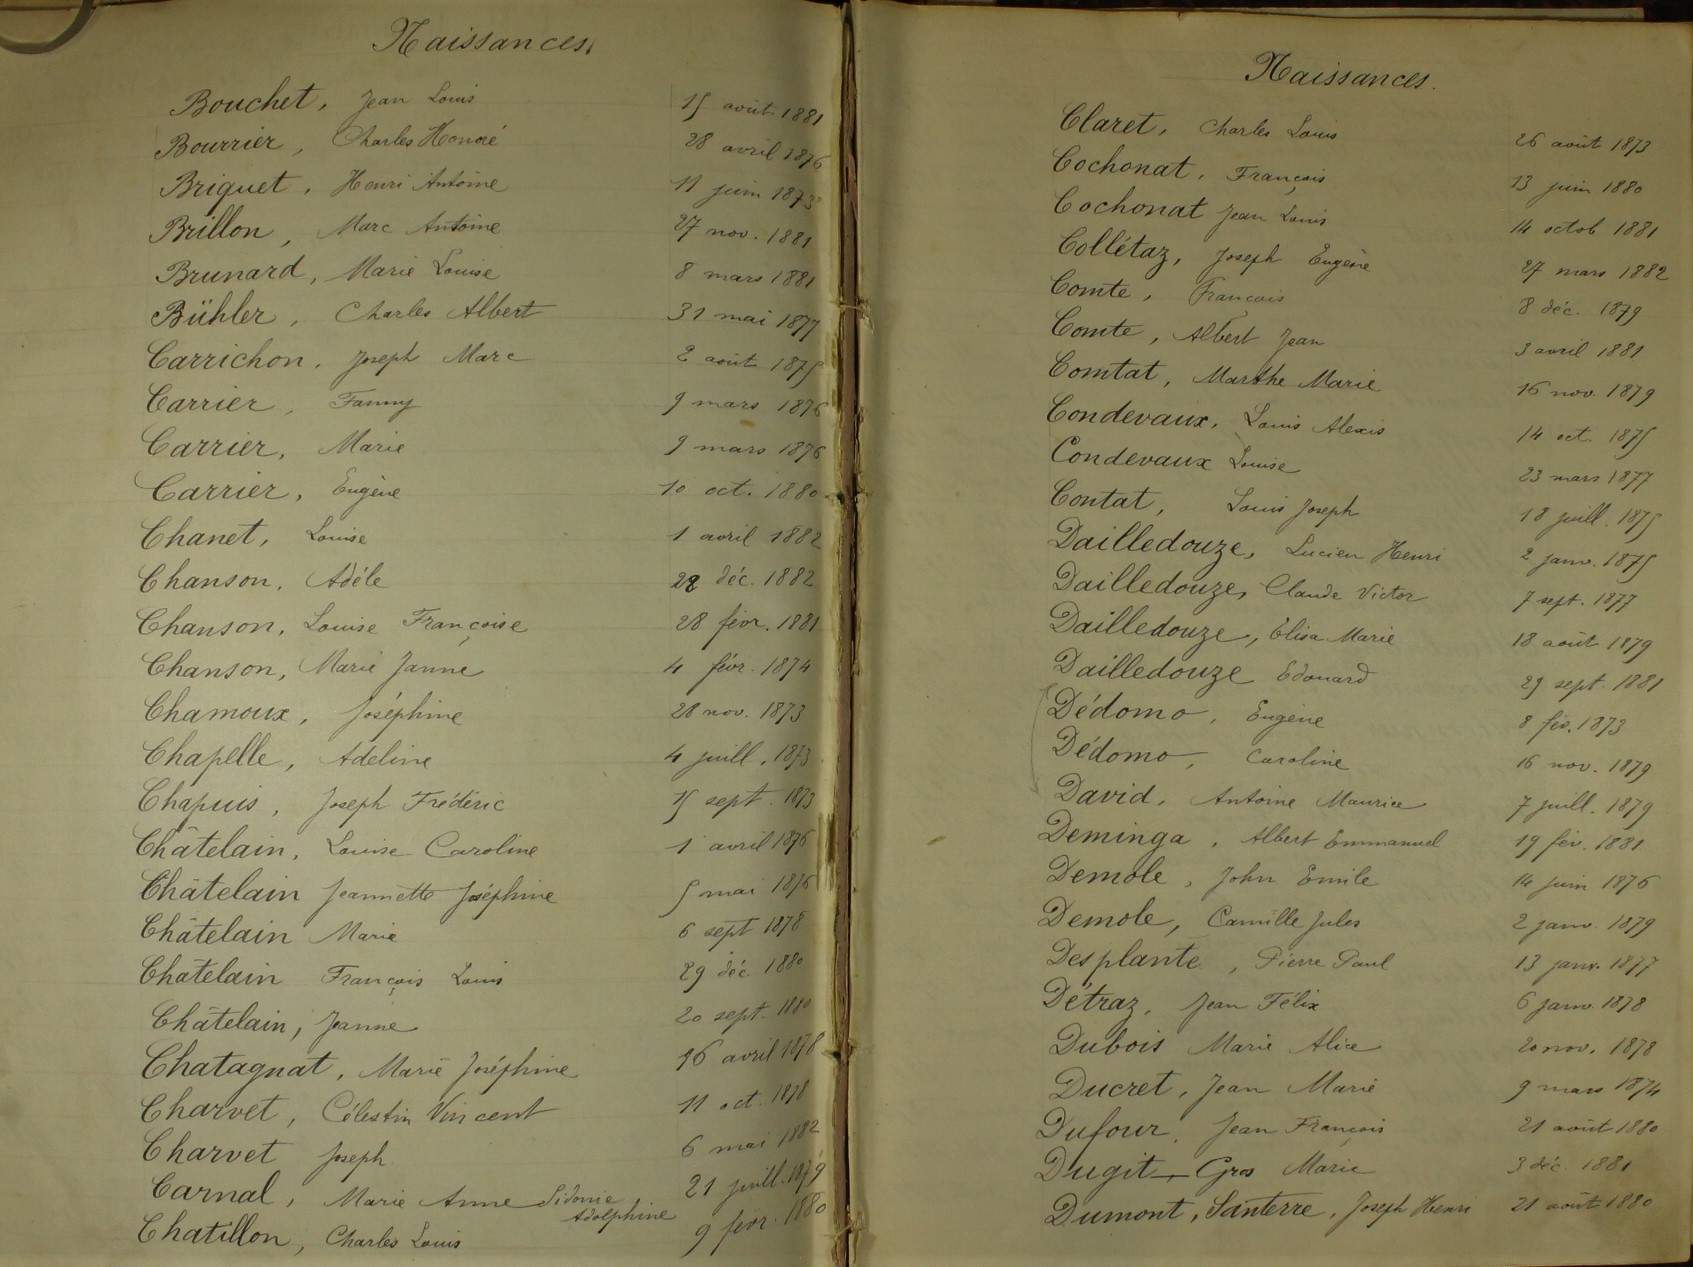 Naissances.
Bouchet, Jean Louis 15 août 1881
Bourrier, Charles Honoré 28 avril 1876
Briquet, Henri Antoine 11 juin 1873
Brillon, Marc Antoine 27 nov. 1881
Brunard, Marie Louise 8 mars 1881
Bühler, Charles Albert 31 mai 1877
Carrichon, Joseph Marc 2 août 1875
Carrier, Fanny 9 mars 1876
Carrier, Marie 9 mars 1876
Carrier, Eugène 10 oct. 1880
Chanet, Louise 1 avril 1882
Chanson, Adèle 28 déc. 1882
Chanson, Louise Françoise 28 févr. 1881
Chanson, Marie Janne 4 févr. 1874
Chamoux, Joséphine 28 nov. 1873
Chapelle, Adeline 4 juill. 1873
Chapuis, Joseph Frédéric 15 sept. 1873
Châtelain, Louise Caroline 1 avril 1876
Châtelain Jeannette Joséphine 5 mai 1876
Châtelain Marie 6 sept 1878
Châtelain François Louis 29 déc 1880
Châtelain, Jeanne 20 sept. 1880
Chatagnat, Marie Joséphine 16 avril 1878
Charvet, Célestin Vincent 11 oct. 1878
Charvet Joseph 6 mai 1882
Carnal, Marie Anne Sidonie Adolphine 21 juill. 1879
Chatillon, Charles Louis 9 févr. 1880
Naissances.
Claret, Charles Louis 26 août 1873
Cochonat, François 13 juin 1880
Cochonat Jean Louis 14 octob 1881
Collétaz, Joseph Eugène 27 mars 1882
Comte, François 8 déc. 1879
Comte, Albert Jean 3 avril 1881
Comtat, Marthe Marie 16 nov. 1879
Condevaux, Louis Alexis 14 oct. 1875
Condevaux Louise 23 mars 1877
Contat, Louis Joseph 18 juill. 1875
Dailledouze, Lucien Henri 2 janv. 1875
Dailledouze, Claude Victor 7 sept. 1877
Dailledouze, Elisa Marie 18 août 1879
Dailledouze Edouard 29 sept. 1881
Dédomo, Eugène 8 fév. 1873
Dédomo, Caroline 16 nov. 1879
David, Antoine Maurice 7 juill. 1879
Deminga, Albert Emmanuel 19 fév. 1881
Demole, John Emile 14 juin 1876
Demole, Camille Jules 2 janv. 1879
Desplante, Pierre Paul 13 janv. 1877
Détraz, Jean Félix 6 janv. 1878
Dubois Marie Alice 20 nov. 1878
Ducret, Jean Marie 9 mars 1874
Dufour, Jean François 21 août 1880
Dugit-Gros Marie 3 déc. 1881
Dumont, Santerre, Joseph Henri 21 août 1880